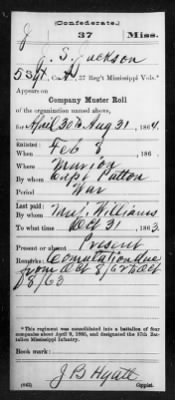 (Confederate.)
J 37 Miss.
J. S. Jackson
Co. A, 37 Reg't Mississippi Vols.*
Appears on
Company Muster Roll
of the organization named above,
for April 30 to Aug 31, 1864.
Enlisted:
When Feb 8
Where Marion
By whom Capt Patton
Period War
Last paid:
By whom Maj. Williams
To what time Oct 31, 1863.
Present or absent Present
Remarks: Comutation due
from Oct 8/62 to Oct
8/63
*This regiment was consolidated into a battalion of four
companies about April 9, 1865, and designated the 37th Bat-
talion Mississippi Infantry.
Book mark:
J B Hyatt
(642) Copyist.